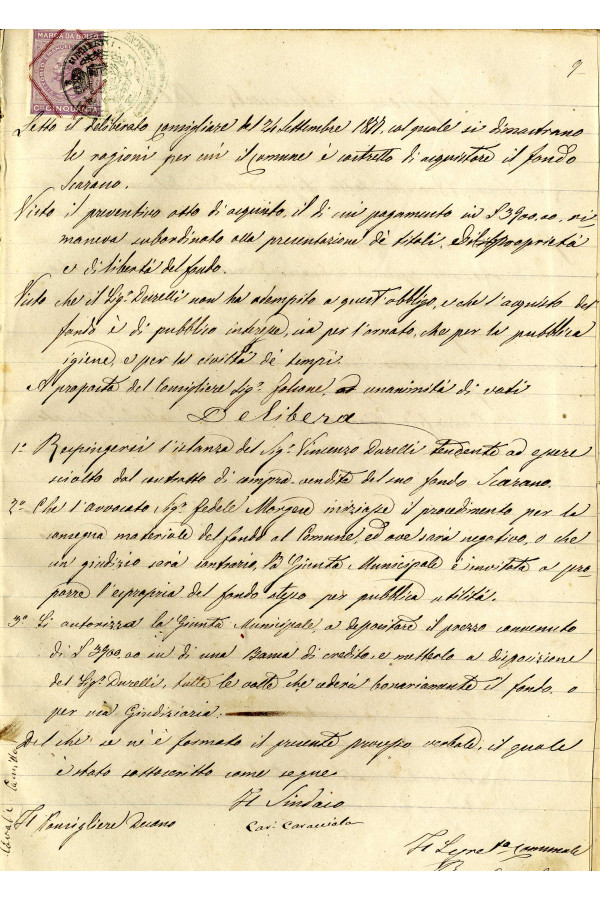 MARCA DA BOLLO
CINQUANTA
9
Letto il deliberato Consigliare del 24 Settembre 1877, col quale si dimostrano
le ragioni per cui il Comune è costretto di acquistare il fondo
Scarano.
Visto il preventivo atto di acquisto, il di cui pagamento in £ 3900,00, ri-
maneva subordinato alla presentazione de' titoli, di proprietà
e di libertà del fondo.
Visto che il Sigr. Durelli non ha adempito a quest'obbligo, e che l'acquisto del
fondo è di pubblico interesse, sia per l'ornato, che per la pubblica
igiene, e per la civiltà de' tempi.
A proposta del Consigliere Sigr. ad unanimità di voti
Delibera
1° Respingersi l'istanza del Sigr. Vincenzo Durelli tendente ad essere
sciolto dal contratto di compra vendita del suo fondo Scarano.
2° Che l'avvocato Sigr. Fedele Morgese iniziasse il procedimento per la
consegna materiale del fondo al Comune, ed ove sarà negativo, o che
un giudizio sarà contrario, la Giunta Municipale è invitata a pro-
porre l'espropria del fondo stesso per pubblica utilità.
3° Si autorizza la Giunta Municipale, a depositare il prezzo convenuto
di £ 3900,00 in di una Banca di credito, e metterlo a disposizione
del Sigr. Durelli, tutte le volte che cederà bonariamente il fondo, o
per via Giudiziaria.
Del che se n'è formato il presente processo verbale, il quale
è stato sottoscritto come segue
Il Sindaco
Il Consigliere Decano
Cav. Caracciolo
Il Segre.to Comunale